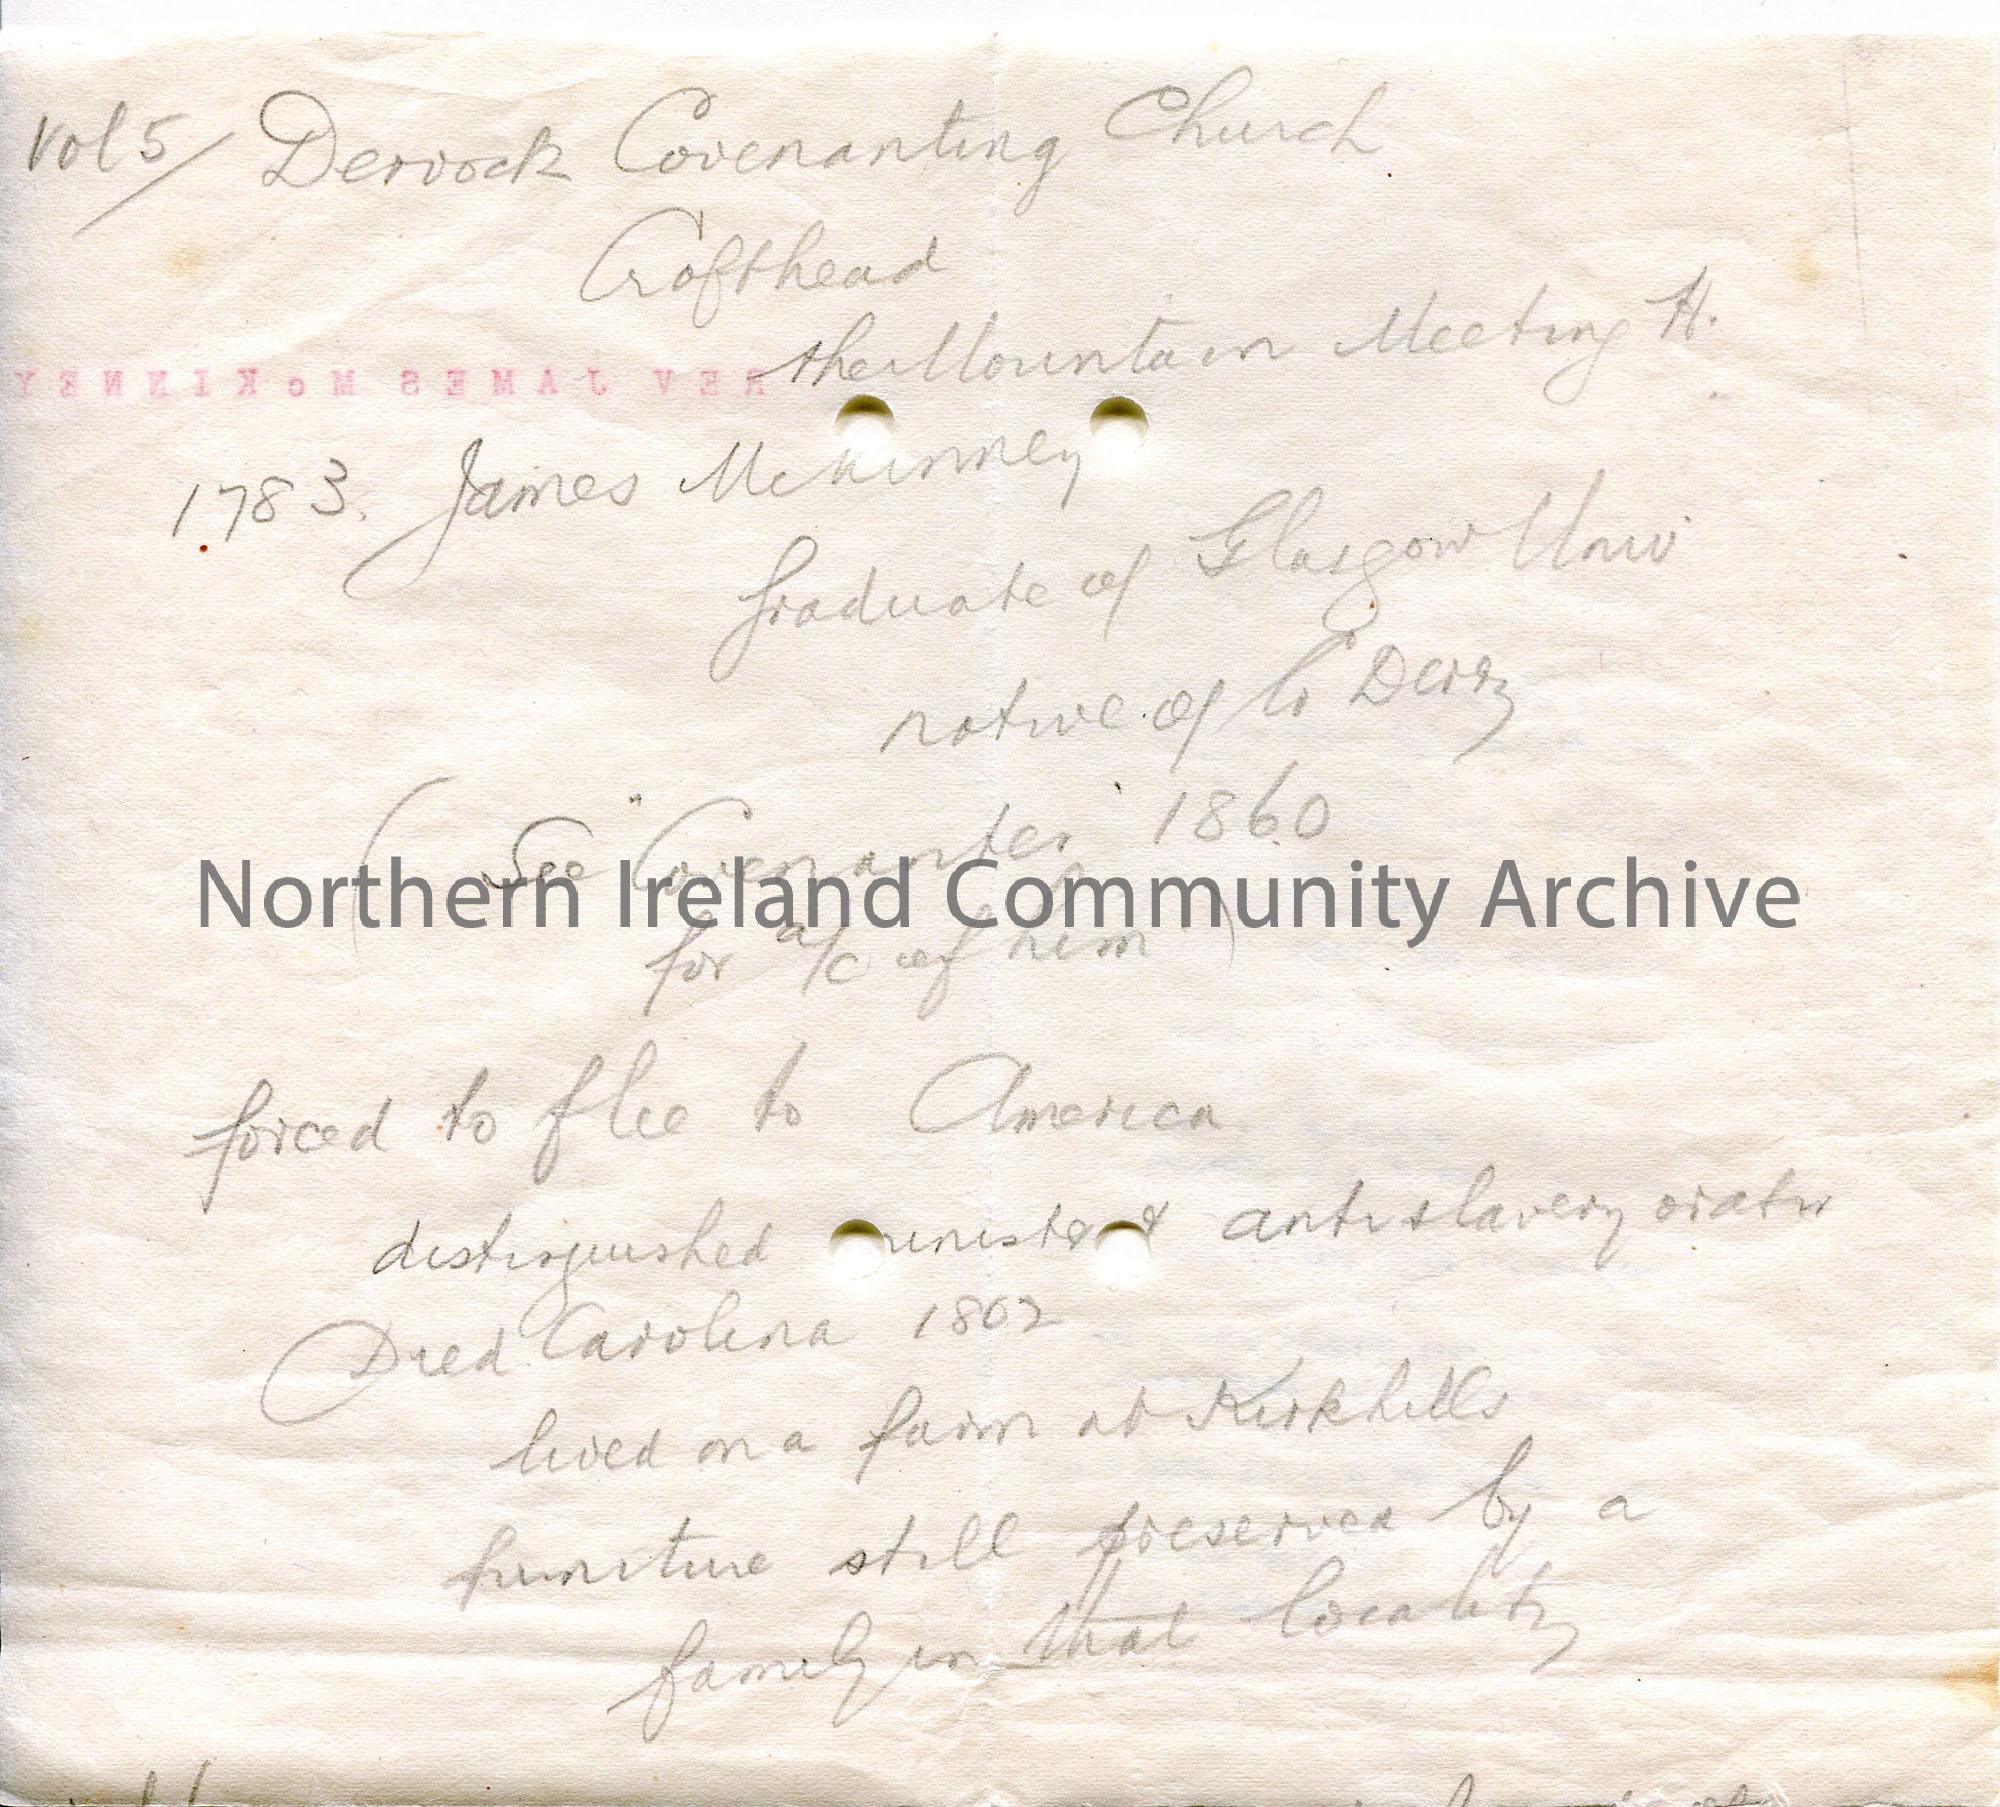 Vol 5/ Dervock Covenanting Church
Crofthead
the Mountain Meeting H.
REV JAMES McKINNEY
1783. James McKinney
Graduate of Glasgow Univ
native of Co Derry
(See "Covenanter" 1860
Northern Ireland Community Archive
for a/c of him)
forced to flee to America
distinguished minister & antislavery orator
Died Carolina 1802
lived on a farm at Kirkhills
furniture still preserved by a
family in that locality